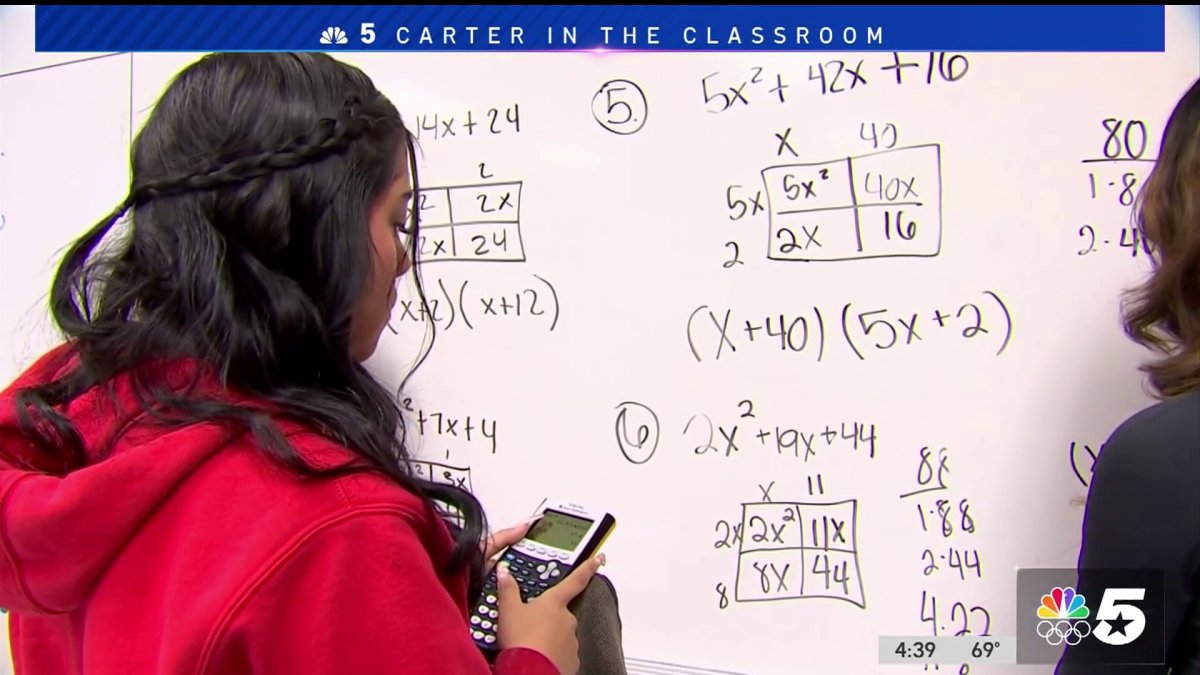 5 CARTER IN THE CLASSROOM
14x+24
2
2x
2x 24
(x+2)(x+12)
+7x+4
1
3x
5.
5x²+ 42x +16
x 40
5x 5x² 40x
2 2x 16
(x+40)(5x+2)
6
2x²+19x+44
x 11
2x 2x² 11x
8 8x 44
80
1·8
2·4
88
1·88
2·44
4·22
5
4:39 69°